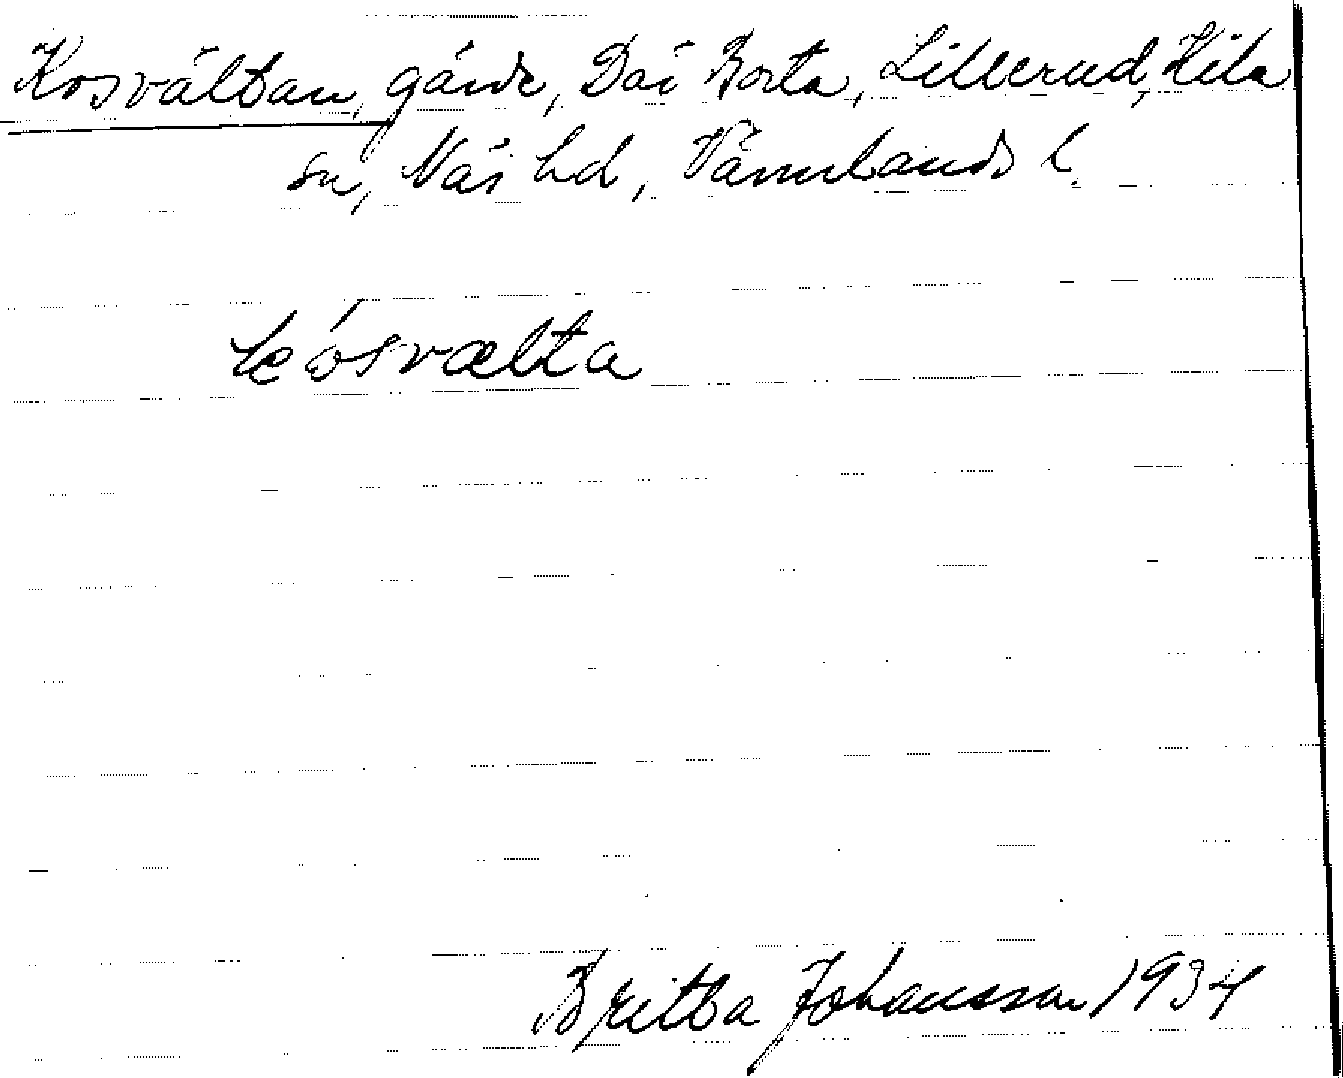 Kosvältan, gärde, Där Borta, Lillerud, Kila
sn, Näs hd, Värmlands l.
kósvælta
Britta Johansson 1934